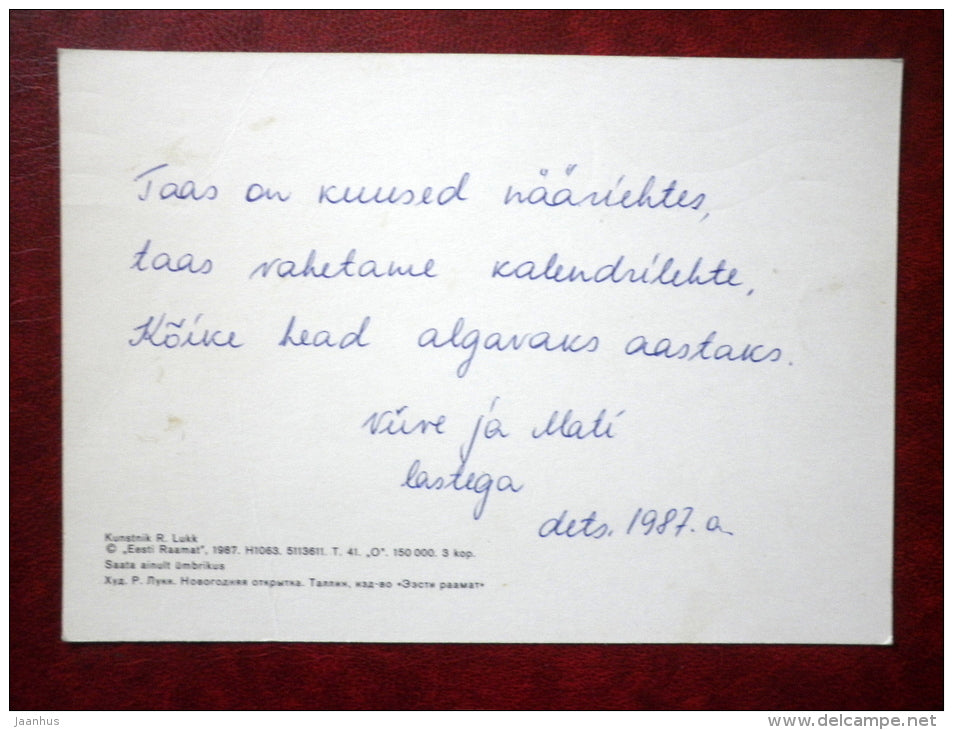 Taas on kuused nääriehtes,
taas vahetame kalendrilehte,
Kõike head algavaks aastaks.
Viive ja Mati
lastega
dets. 1987. a.
Kunstnik R. Lukk
© „Eesti Raamat", 1987. H1063. 5113611. T. 41. „O". 150 000. 3 kop.
Saata ainult ümbrikus
Худ. Р. Лукк. Новогодняя открытка. Таллин, изд-во «Ээсти раамат»
jaanhus
delcampe.net